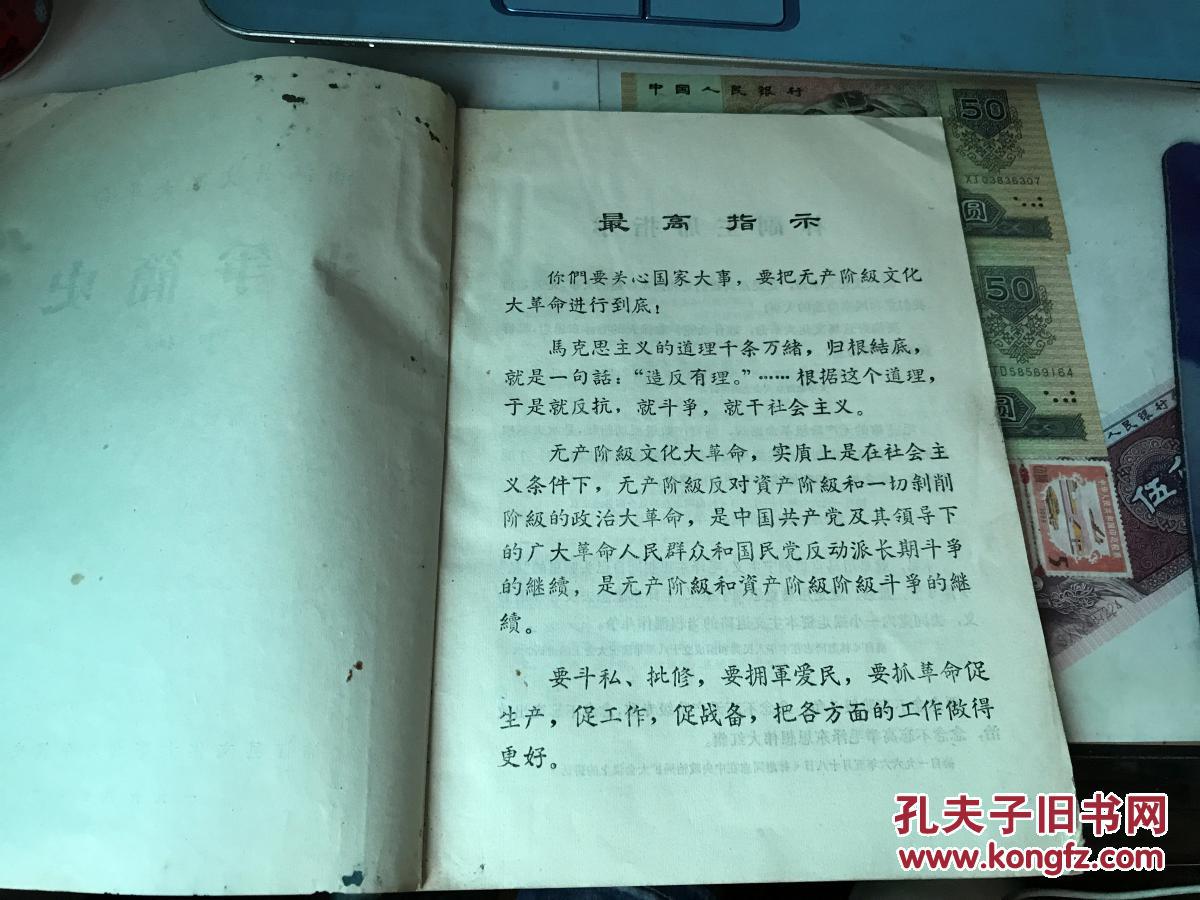 最高指示
你們要关心国家大事，要把无产阶級文化
大革命进行到底！
馬克思主义的道理千条万緒，归根結底，
就是一句話：“造反有理。”……根据这个道理，
于是就反抗，就斗爭，就干社会主义。
无产阶級文化大革命，实质上是在社会主
义条件下，无产阶級反对資产阶級和一切剝削
阶級的政治大革命，是中国共产党及其領导下
的广大革命人民群众和国民党反动派长期斗爭
的継續，是无产阶級和資产阶級阶級斗爭的継
續。
要斗私、批修，要拥軍爱民，要抓革命促
生产，促工作，促战备，把各方面的工作做得
更好。
中国人民银行
50
XT03836307
圆
50
TD58569164
圆
人民银行
伍
孔夫子旧书网
www.kongfz.com